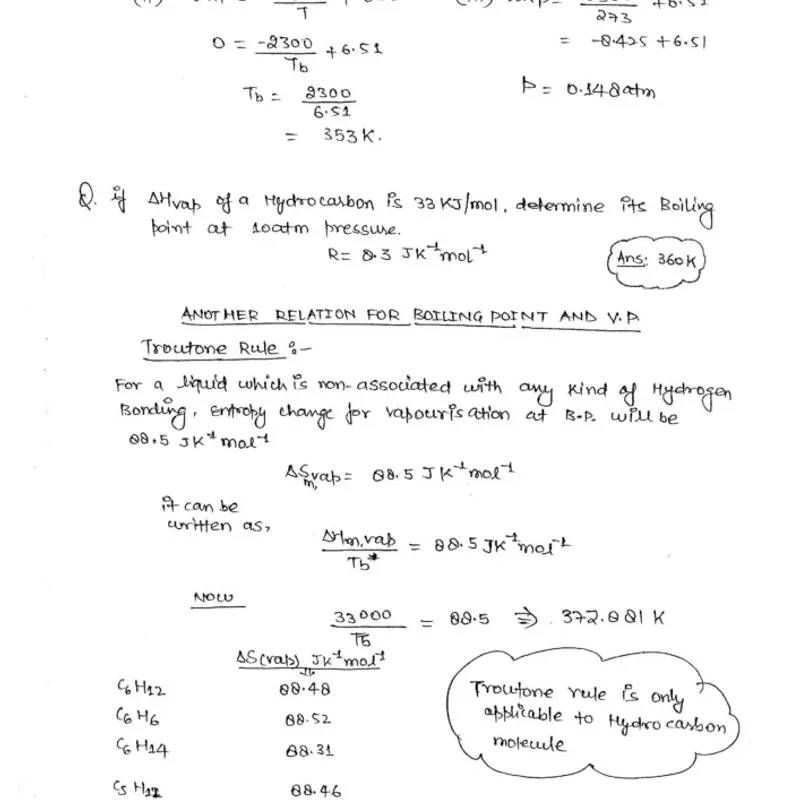 T
273
0 = -2300/Tb + 6.51
= -8.425 + 6.51
Tb = 2300/6.51
P = 0.148atm
= 353K.
Q. if ΔHvap of a Hydrocarbon is 33 KJ/mol, determine its Boiling
point at 10atm pressure.
R= 8.3 JK⁻¹mol⁻¹
Ans: 360K
ANOTHER RELATION FOR BOILING POINT AND V.P.
Troutone Rule :-
For a liquid which is non-associated with any kind of Hydrogen
Bonding, entropy change for vapourisation at B.P. will be
88.5 JK⁻¹mol⁻¹
ΔSm,vap = 88.5 JK⁻¹mol⁻¹
it can be
written as,
ΔHm,vap/Tb* = 88.5 JK⁻¹mol⁻¹
NOW
33000/Tb = 88.5 ⇒ 372.881 K
ΔS(vap) JK⁻¹mol⁻¹
C6H12 88.48
C6H6 88.52
C6H14 88.31
C5H12 88.46
Troutone rule is only
applicable to Hydrocarbon
molecule